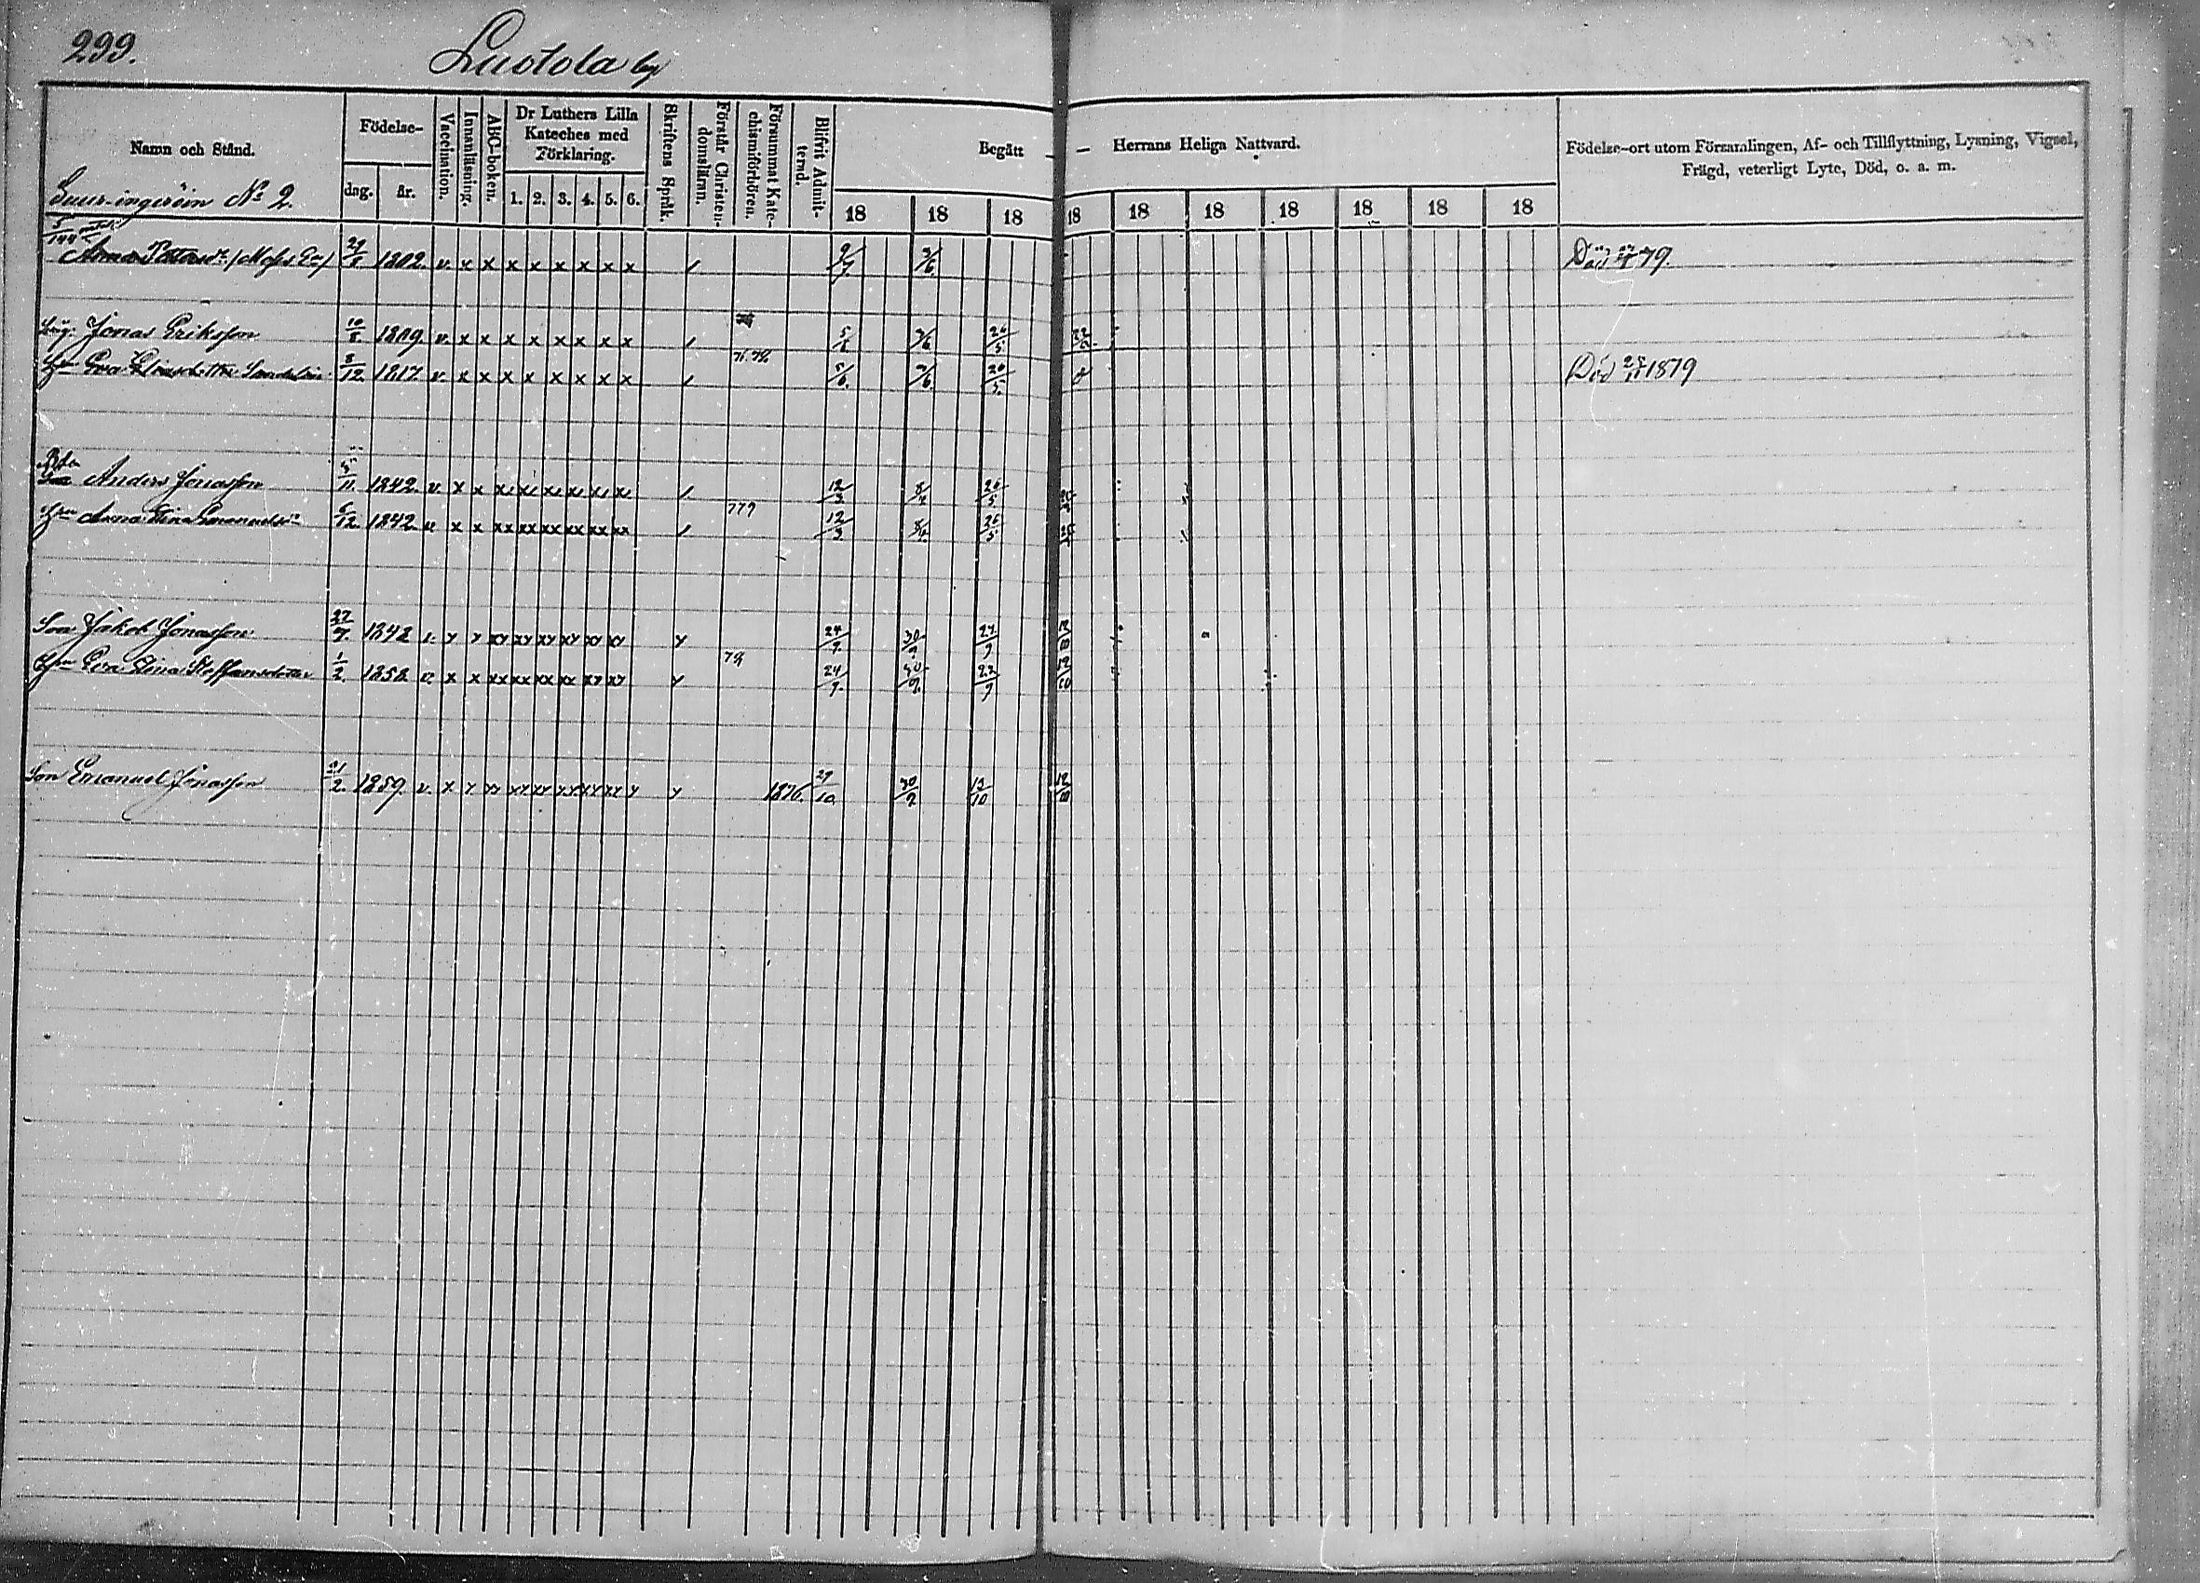 299.
Luotola by
Namn och Stånd.
Födelse-
dag.
år.
Vaccination.
Innanläsning.
ABC-boken.
Dr Luthers Lilla Kateches med Förklaring.
1. 2. 3. 4. 5. 6.
Skriftens Språk.
Förstår Christendomsläran.
Försummat Katechismiförhören.
Blifvit Admitterad.
Begått — — Herrans Heliga Nattvard.
18 18 18 18 18 18 18 18 18 18
Födelse-ort utom Församlingen, Af- och Tillflyttning, Lysning, Vigsel,
Frägd, veterligt Lyte, Död, o. a. m.
Suur-ingeröin No 2.
1802. v. x x x x x x x x 9/7 9/6 Död 79.
Jonas Eriksson 10/8 1809. v. x x x x x x x x 5/6 9/6 26/5
76. 78
Hru Eva 3/12. 1817. v. x x x x x x x x 5/6. 9/6. 26/5. Död 1879
Anders Jonasson 1842. v. x x x x x x x x 12/3 8/4 26/5
779
Hru Anna Stina Emanuelsdr 6/12. 1842. v. x x xx xx xx xx xx xx 12/3 8/4. 26/5
Son Jakob Jonasson 27/7. 1848 v. 24/9. 30/9. 27/9 12/10
79
Hru Eva Stina Staffansdotter 1/2. 1852 v. x x xx xx xx xx xx xx 24/9. 30/9. 27/9 12/10
Son Emanuel Jonasson 21/2. 1859. v. 1876. 29/10. 30/9. 12/10 12/10